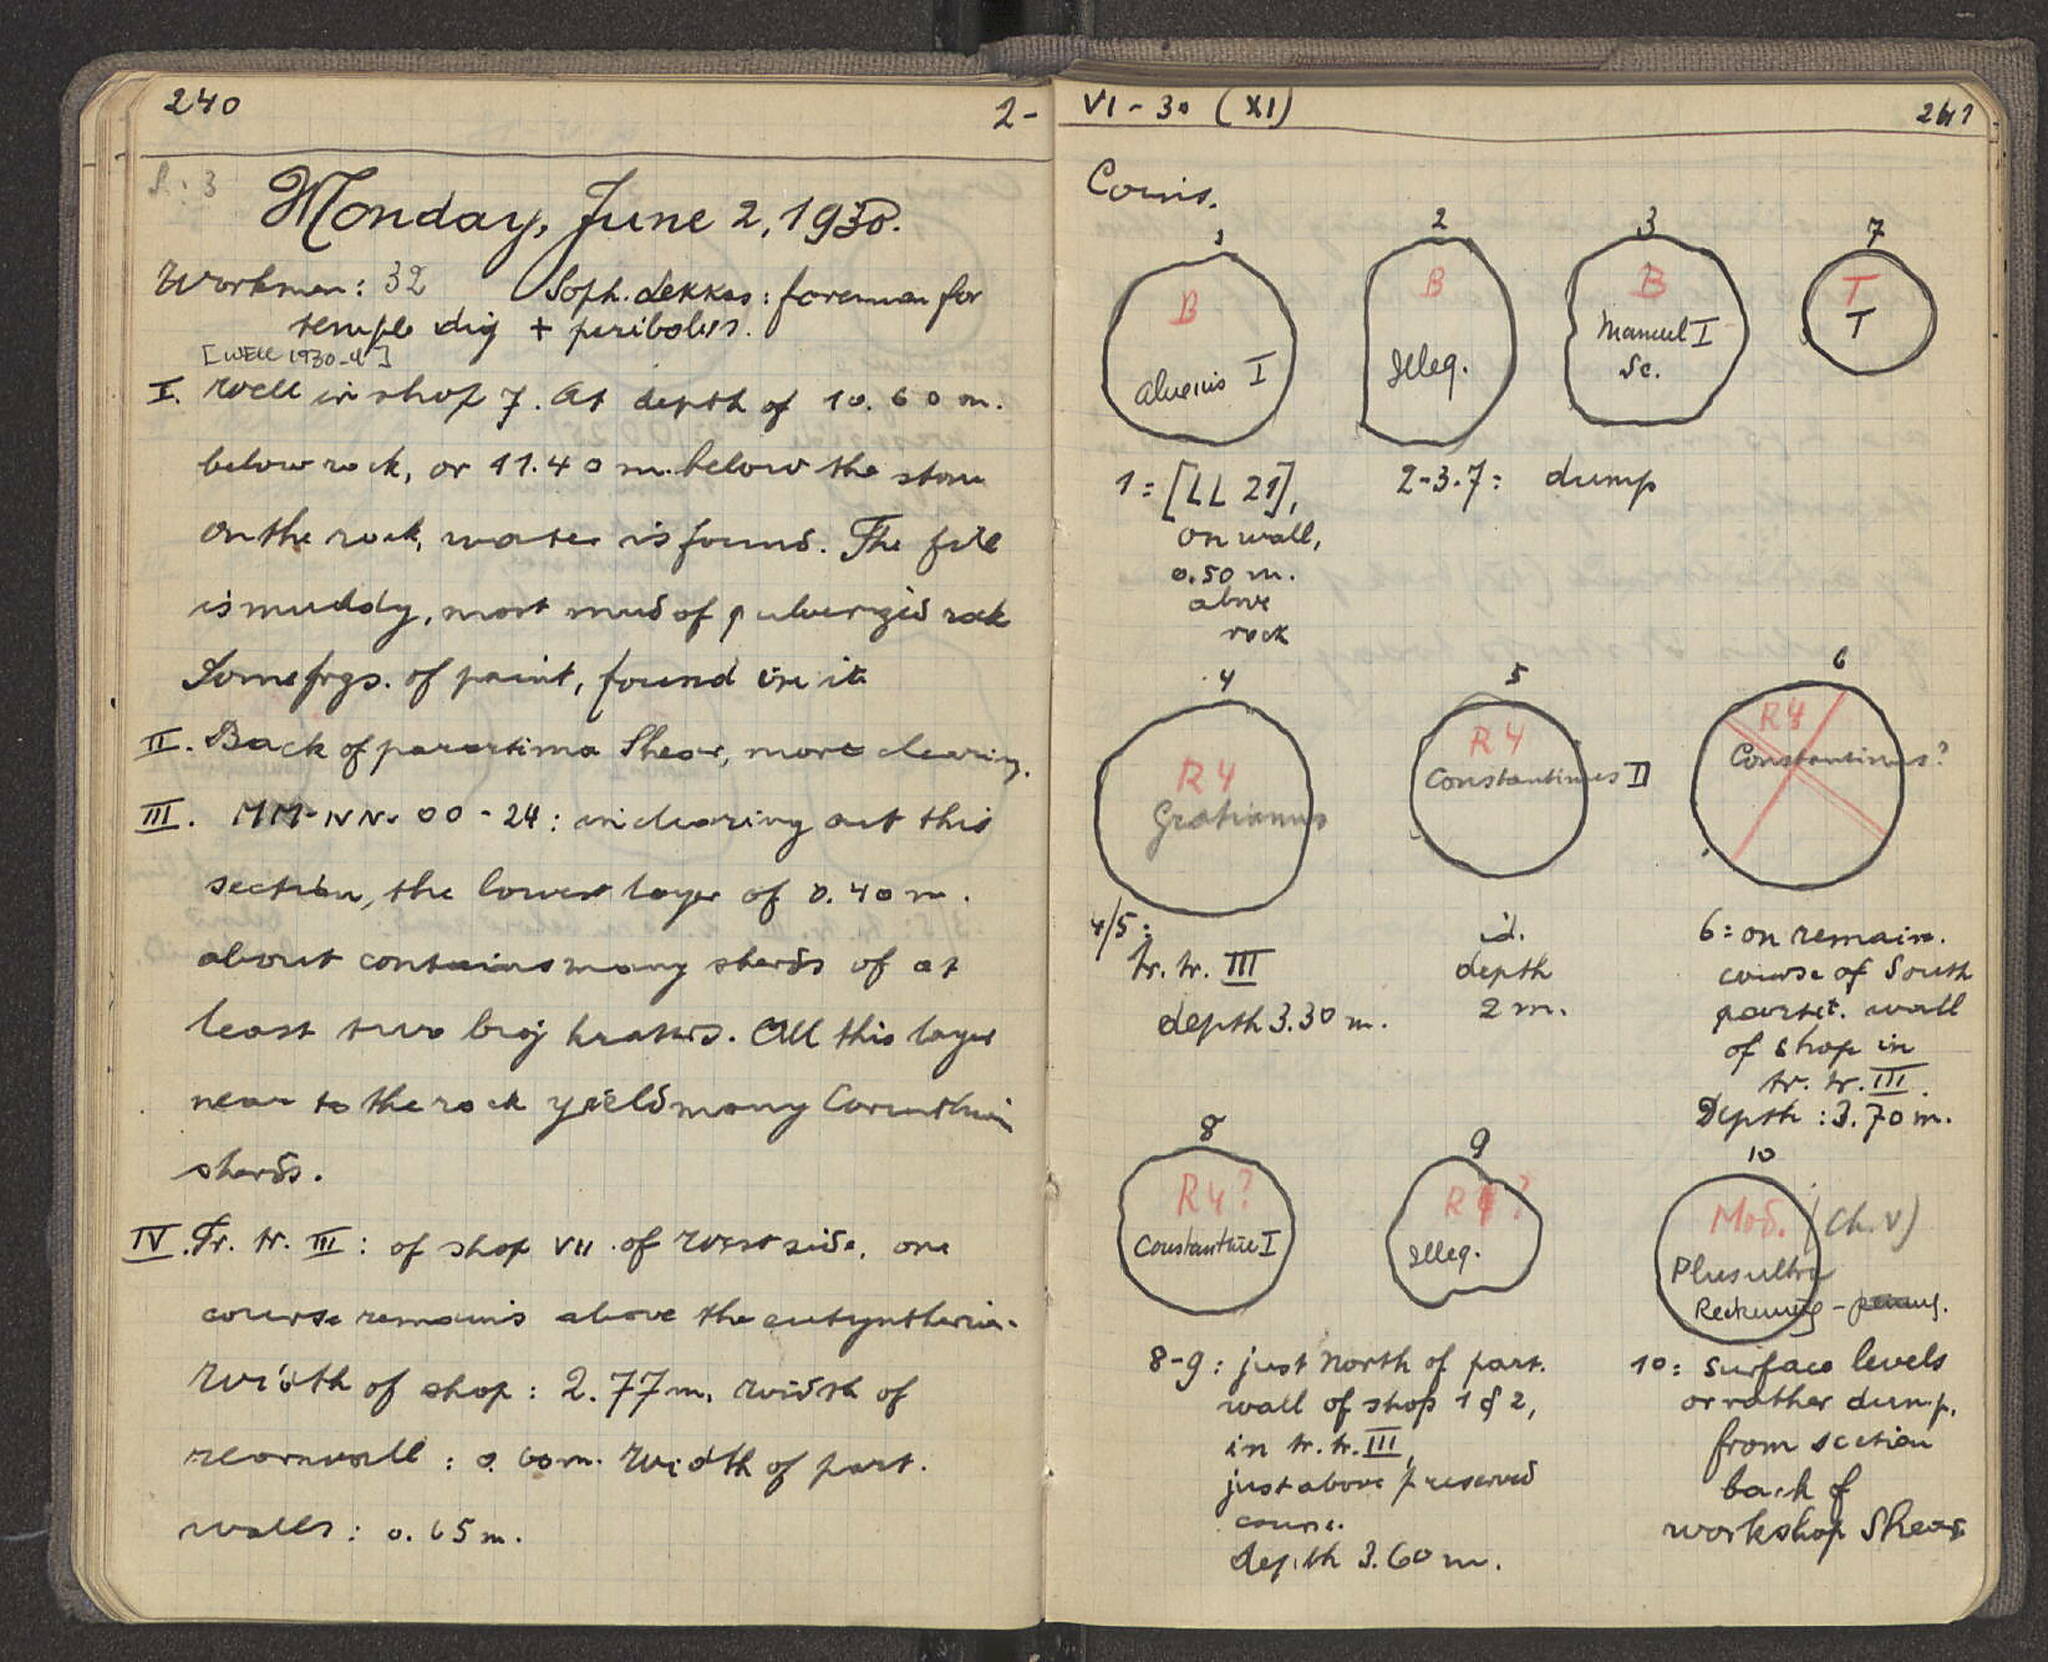 240
2-
Monday, June 2, 1930.
Workmen: 32 Soph. Lekkas: foreman for
temple dig + peribolus.
[WELL 1930-4]
I. Well in shop 7. At depth of 10.60 m.
below rock, or 11.40 m. below the stone
on the rock, water is found. The fill
is muddy, most mud of pulverized rock
Some frgs. of paint, found in it
II. Back of parartima Shear, more clearing.
III. MM-NN. 00-24: in clearing out this
section, the lowest layer of 0.40 m.
about contains many sherds of at
least two big kraters. All this layer
near to the rock yields many Corinthian
sherds.
IV. Tr. tr. III: of shop VII of West side, one
course remains above the euthynteria.
Width of shop: 2.77 m. Width of
rearwall: 0.60 m. Width of part.
walls: 0.65 m.
VI-30 (XI)
241
Coins.
1
2
3
7
B
B
B
T
I
Illeg.
Manuel I
Sc.
T
1= [LL 21],
on wall,
0.50 m.
above
rock
2-3.7: dump
4
5
6
R4
Gratianus
R4
Constantinus II
R4
Constantinus?
4/5:
tr. tr. III
depth 3.30 m.
id.
depth
2 m.
6: on remain.
course of South
partit. wall
of shop in
tr. tr. III.
Depth: 3.70 m.
8
9
10
R4?
Constantine I
R4?
Illeg.
Mod. (Ch. V)
Plus ultra
Reckening-
8-9: just North of part.
wall of shop 1 & 2,
in tr. tr. III,
just above preserved
course.
depth 3.60 m.
10: surface levels
or rather dump,
from section
back of
workshop Shear